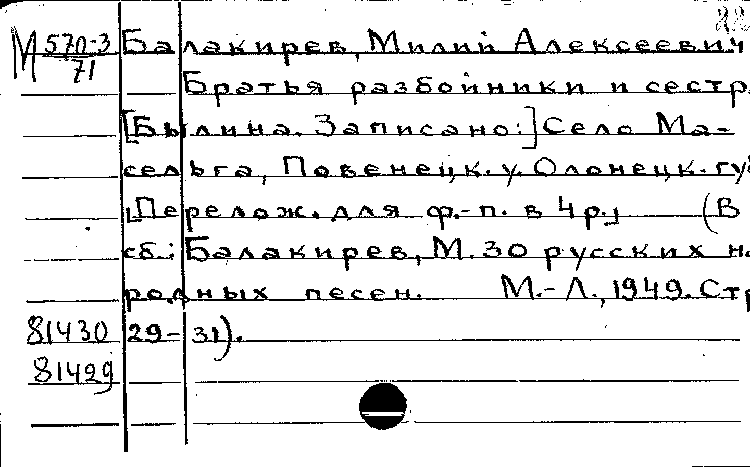 22
М 570-3 Балакирев, Милий Алексеевич
71 Братья разбойники и сестр
[Былина. Записано:] Село Ма-
сельга, Повенецк. у. Олонецк. гу
[Перелож. для ф.-п. в 4 р.] (В
сб.: Балакирев, М. 30 русских н.
родных песен. М.-Л., 1949. Стр
81430 29-31).
81429